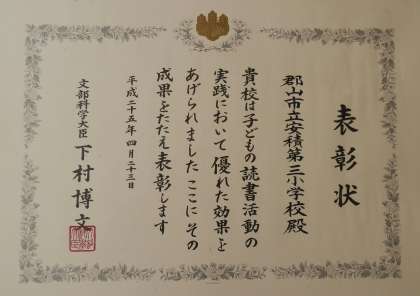 表彰状
郡山市立安積第三小学校殿
貴校は子どもの読書活動の
実践において優れた効果を
あげられました ここに その
成果をたたえ表彰します
平成二十五年 四月二十三日
文部科学大臣 下村博文